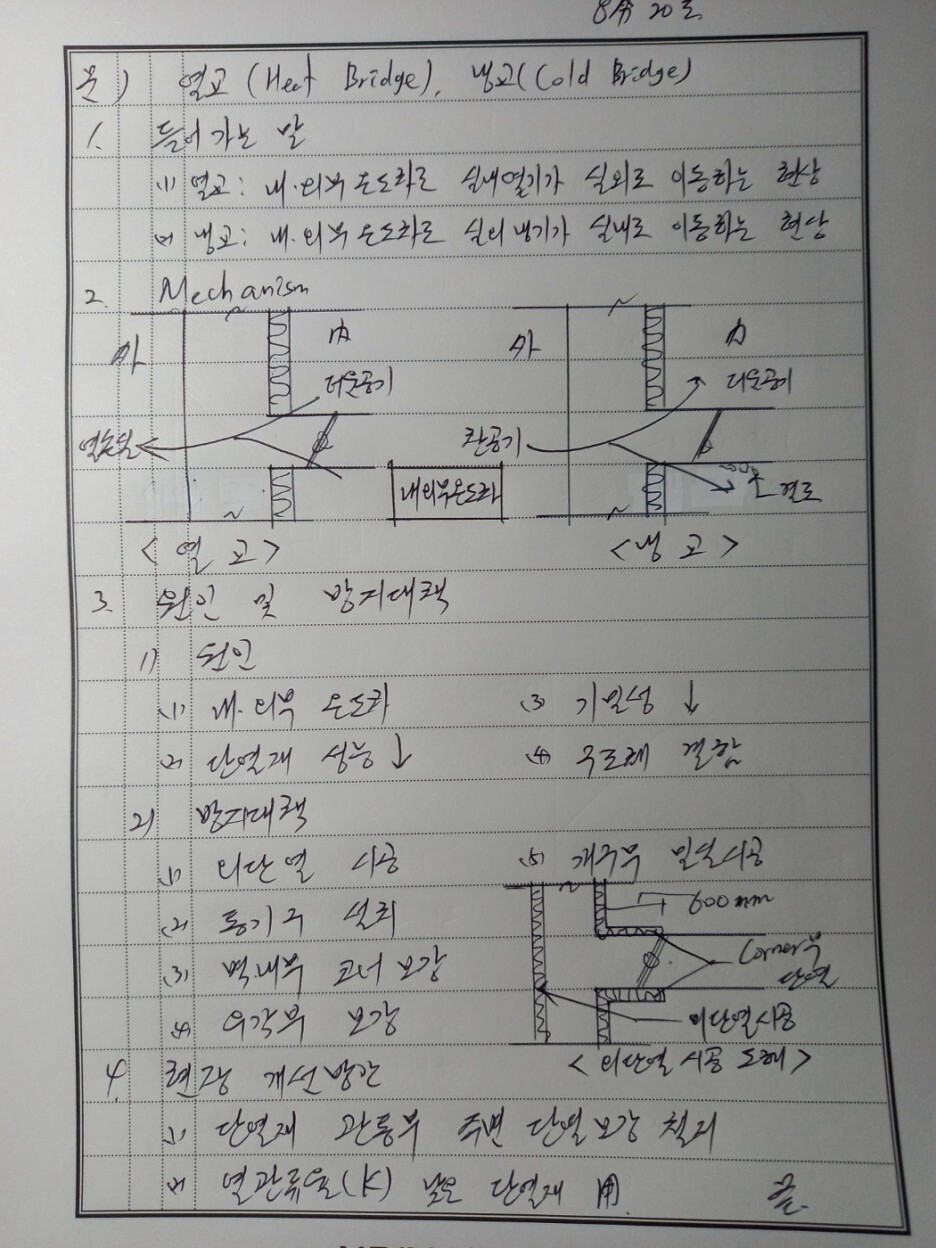 8分 20초
문) 열교 (Heat Bridge), 냉교(Cold Bridge)
1. 들어가는 말
(1) 열교: 내·외부 온도차로 실내열기가 실외로 이동하는 현상
(2) 냉교: 내·외부 온도차로 실외냉기가 실내로 이동하는 현상
2. Mechanism
外 內 外 內
더운공기 더운공기
열손실 찬공기
내외부온도차 결로
< 열교 > < 냉교 >
3. 원인 및 방지대책
1) 원인
(1) 내·외부 온도차 (3) 기밀성 ↓
(2) 단열재 성능 ↓ (4) 우도레 결함
2) 방지대책
(1) 외단열 시공 (5) 개구부 밀실시공
(2) 통기구 설치 600mm
(3) 벽내부 코너 보강 Corner부 단열
(4) 우각부 보강 외단열시공
< 외단열 시공 도해 >
4. 현장 개선방안
(1) 단열재 관통부 주변 단열보강 철저
(2) 열관류율(K) 낮은 단열재 用. 끝.